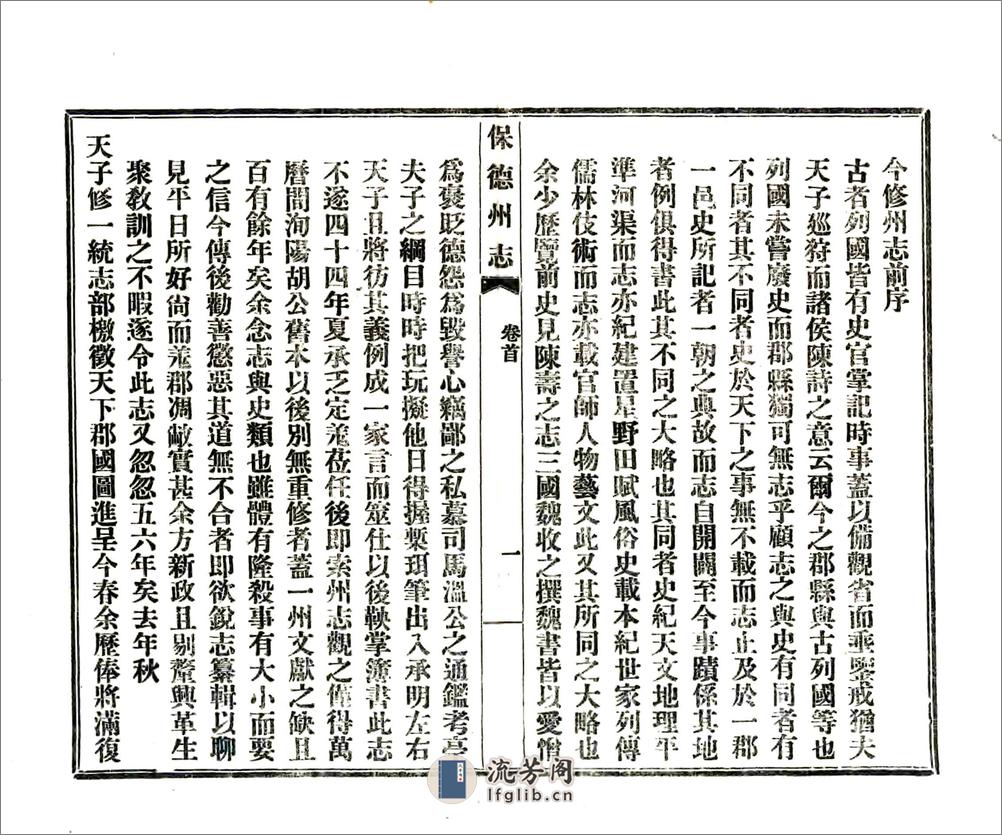 今修州志前序
古者列國皆有史官掌記時事蓋以備觀省而垂鑒戒猶夫
天子巡狩而諸侯陳詩之意云爾今之郡縣與古列國等也
列國未嘗廢史而郡縣獨可無志乎顧志之與史有同者有
不同者其不同者史於天下之事無不載而志止及於一郡
一邑史所記者一朝之典故而志自開闢至今事蹟係其地
者例俱得書此其不同之大略也其同者史紀天文地理平
準河渠而志亦紀建置星野田賦風俗史載本紀世家列傳
儒林伎術而志亦載官師人物藝文此又其所同之大略也
余少歷覽前史見陳壽之志三國魏收之撰魏書皆以愛憎
保德州志
卷首
一
為褒貶德怨為毀譽心竊鄙之私慕司馬溫公之通鑑考亭
夫子之綱目時時把玩擬他日得握槧珥筆出入承明左右
天子且將彷其義例成一家言而筮仕以後鞅掌簿書此志
不遂四十四年夏承乏定羗莅任後即索州志觀之僅得萬
曆間洵陽胡公舊本以後別無重修者蓋一州文獻之缺且
百有餘年矣余念志與史類也雖體有隆殺事有大小而要
之信今傳後勸善懲惡其道無不合者即欲銳志纂輯以聊
見平日所好尚而羗郡凋敝實甚余方新政且剔釐興革生
聚教訓之不暇遂令此志又忽忽五六年矣去年秋
天子修一統志部檄徵天下郡國圖進呈今春余歷俸將滿復
流芳阁
lfglib.cn